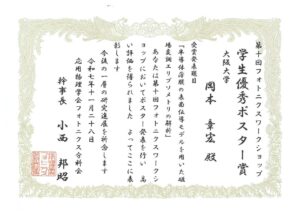 第十回フォトニクスワークショップ
学生優秀ポスター賞
大阪大学
岡本 章宏 殿
受賞発表題目
「半導体薄膜の表面位博モデルを用いた磁
場変調エリプソメトリの解析」
あなたは第十回フォトニクスワークシ
ョップにおいてポスター発表を行い 高
い評価を得られました よってここに表
彰します
今後の一層の研究進展を祈念します
令和七年十一月二十八日
応用物理学会フォトニクス分科会
幹事長 小西 邦昭